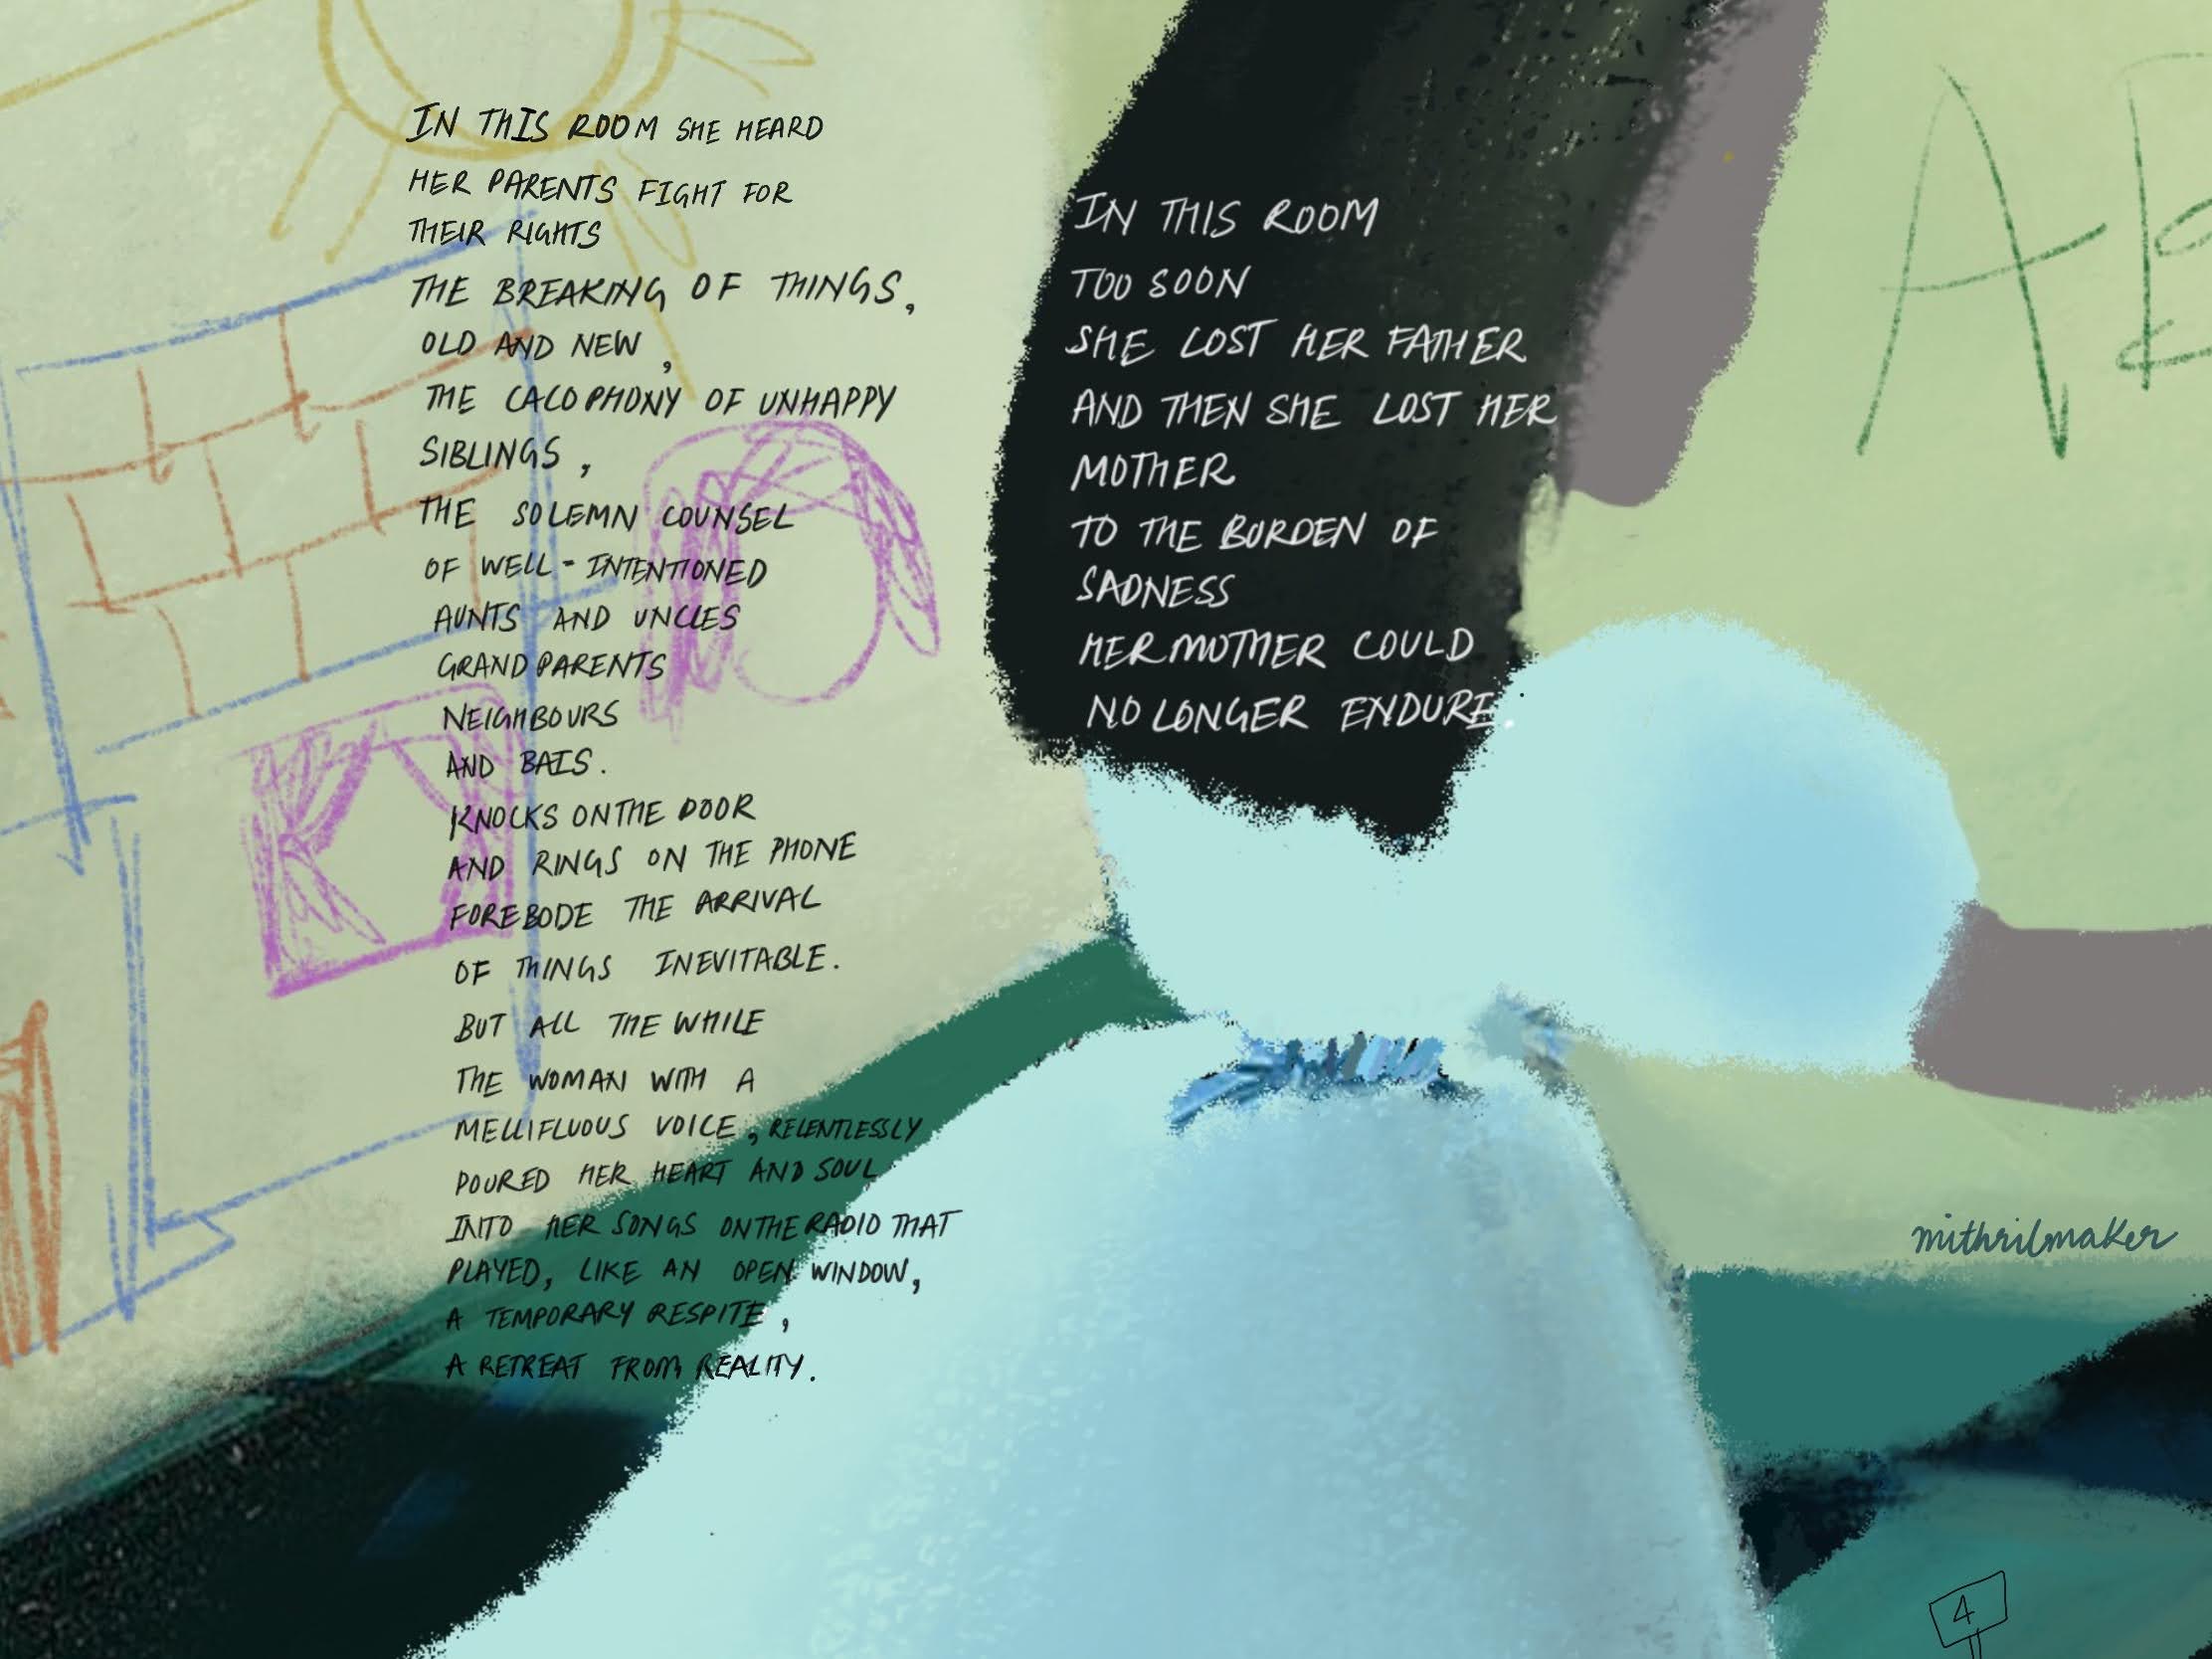 IN THIS ROOM SHE HEARD
HER PARENTS FIGHT FOR
THEIR RIGHTS
THE BREAKING OF THINGS,
OLD AND NEW,
THE CACOPHONY OF UNHAPPY
SIBLINGS,
THE SOLEMN COUNSEL
OF WELL-INTENTIONED
AUNTS AND UNCLES
GRANDPARENTS
NEIGHBOURS
AND BAIS.
KNOCKS ON THE DOOR
AND RINGS ON THE PHONE
FOREBODE THE ARRIVAL
OF THINGS INEVITABLE.
BUT ALL THE WHILE
THE WOMAN WITH A
MELLIFLUOUS VOICE, RELENTLESSLY
POURED HER HEART AND SOUL
INTO HER SONGS ON THE RADIO THAT
PLAYED, LIKE AN OPEN WINDOW,
A TEMPORARY RESPITE,
A RETREAT FROM REALITY.
IN THIS ROOM
TOO SOON
SHE LOST HER FATHER
AND THEN SHE LOST HER
MOTHER
TO THE BURDEN OF
SADNESS
HER MOTHER COULD
NO LONGER ENDURE.
AB
mithrilmaker
4